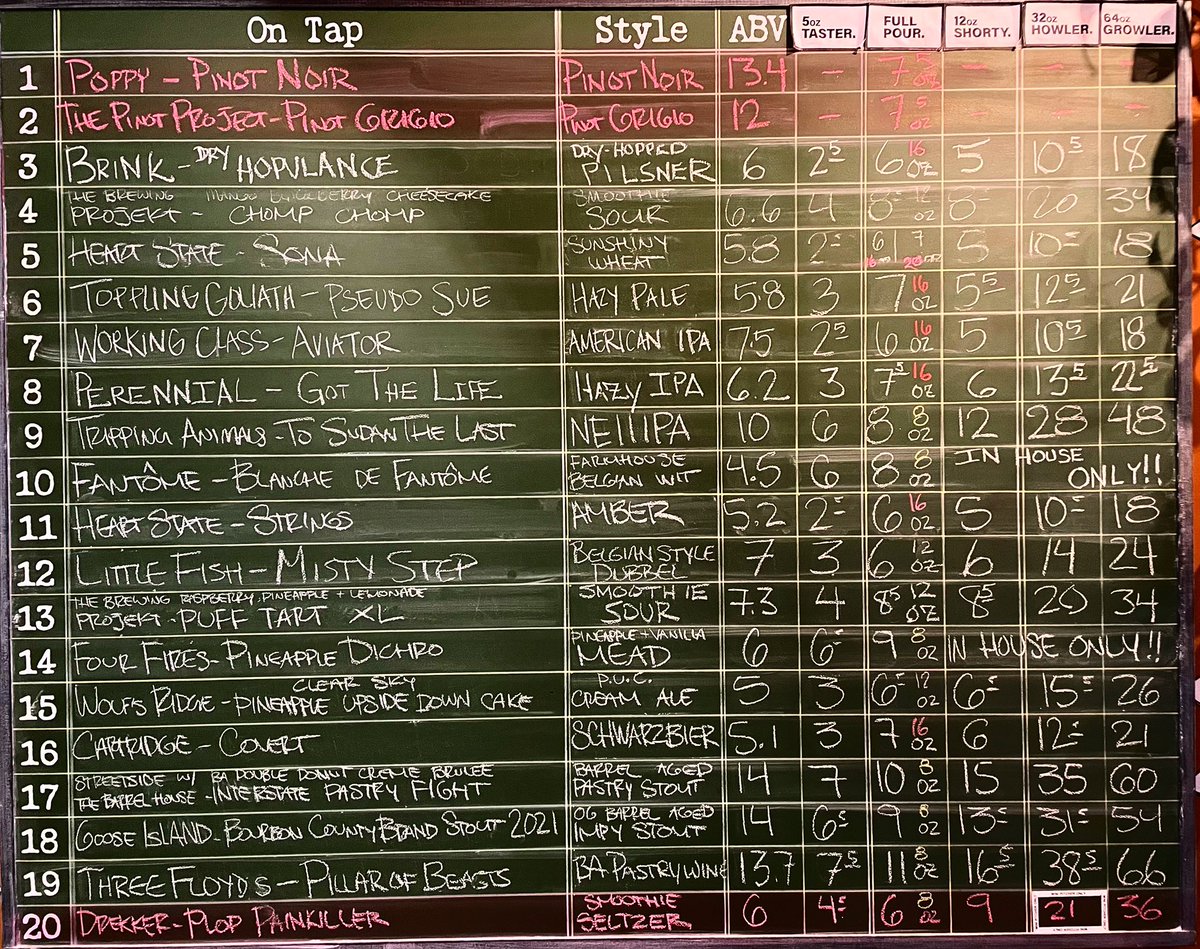 On Tap Style ABV 5oz TASTER. FULL POUR. 12oz SHORTY. 32oz HOWLER. 64oz GROWLER.
1 POPPY - PINOT NOIR PINOT NOIR 13.4 - 7 5 OZ - - -
2 THE PINOT PROJECT - PINOT GRIGIO PINOT GRIGIO 12 - 7 5 OZ -
3 BRINK - DRY HOPULANCE DRY-HOPPED PILSNER 6 2⁵ 6 16 OZ 5 10⁵ 18
4 THE BREWING PROJEKT - CHOMP CHOMP CHEESECAKE SMOOTHIE SOUR 6.6 4 8 12 OZ 8 20 34
5 HEART STATE - SONA SUNSHINY WHEAT 5.8 2⁵ 6 16 OZ 7 20 OZ 5 10⁵ 18
6 TOPPLING GOLIATH - PSEUDO SUE HAZY PALE 5.8 3 7 16 OZ 5⁵ 12⁵ 21
7 WORKING CLASS - AVIATOR AMERICAN IPA 7.5 2⁵ 6 16 OZ 5 10⁵ 18
8 PERENNIAL - GOT THE LIFE HAZY IPA 6.2 3 7⁵ 16 OZ 6 13⁵ 22⁵
9 TRIPPING ANIMALS - TO SUDAN THE LAST NEIIIPA 10 6 8 8 OZ 12 28 48
10 FANTÔME - BLANCHE DE FANTÔME FARMHOUSE BELGIAN WIT 4.5 6 8 8 OZ IN HOUSE ONLY!!
11 HEART STATE - STRINGS AMBER 5.2 2⁵ 6 16 OZ 5 10⁵ 18
12 LITTLE FISH - MISTY STEP BELGIAN STYLE DUBBEL 7 3 6 12 OZ 6 14 24
13 THE BREWING PROJEKT - PUFF TART XL RASPBERRY, PINEAPPLE + LEMONADE SMOOTHIE SOUR 7.3 4 8⁵ 12 OZ 8⁵ 20 34
14 FOUR FIRES - PINEAPPLE DICHRO PINEAPPLE + VANILLA MEAD 6 6⁵ 9 8 OZ IN HOUSE ONLY!!
15 WOLF'S RIDGE - CLEAR SKY PINEAPPLE UPSIDE DOWN CAKE P.U.C. CREAM ALE 5 3 6⁵ 12 OZ 6⁵ 15⁵ 26
16 CARTRIDGE - COVERT SCHWARZBIER 5.1 3 7 16 OZ 6 12⁵ 21
17 STREETSIDE W/ THE BARREL HOUSE - BA DOUBLE DONUT CREME BRULEE INTERSTATE PASTRY FIGHT BARREL AGED PASTRY STOUT 14 7 10 8 OZ 15 35 60
18 GOOSE ISLAND - BOURBON COUNTY BRAND STOUT 2021 OG BARREL AGED IMPY STOUT 14 6⁵ 9 8 OZ 13⁵ 31⁵ 54
19 THREE FLOYDS - PILLAR OF BEASTS BA PASTRYWINE 13.7 7⁵ 11 8 OZ 16⁵ 38⁵ 66
20 DREKKER - PLOP PAINKILLER SMOOTHIE SELTZER 6 4⁵ 6 8 OZ 9 21 36